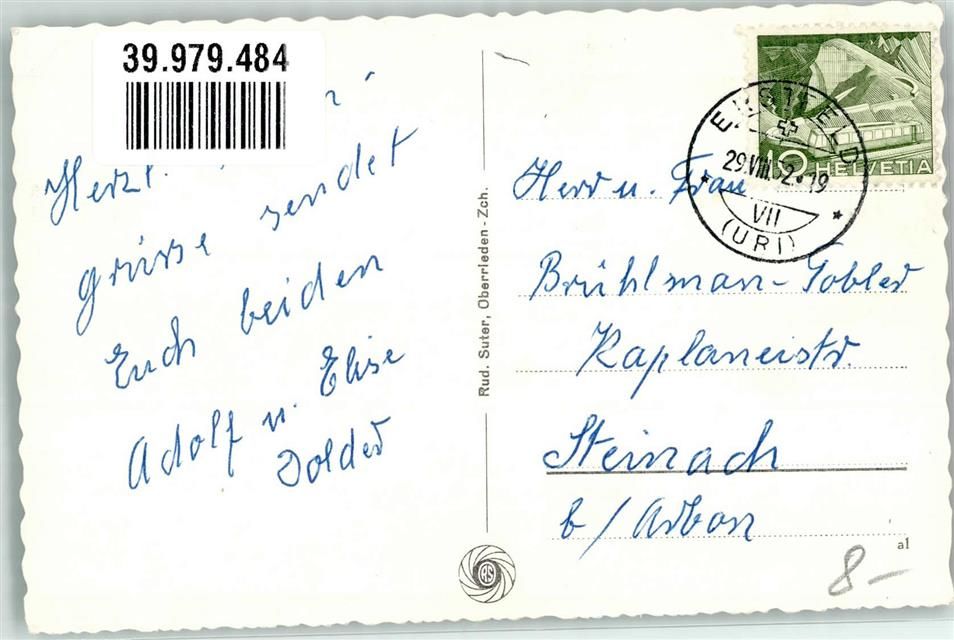 39.979.484
Herzl.
grüsse sendet
Euch beiden
Adolf u. Elise
Dolder
Rud. Suter, Oberrieden - Zch.
RS
HELVETIA
ERSTFELD
29.VIII.52.19
VII
(URI)
Herr u. Frau
Brühlman-Tobler
Kaplaneistr.
Steinach
b/Arbon
a1
8-